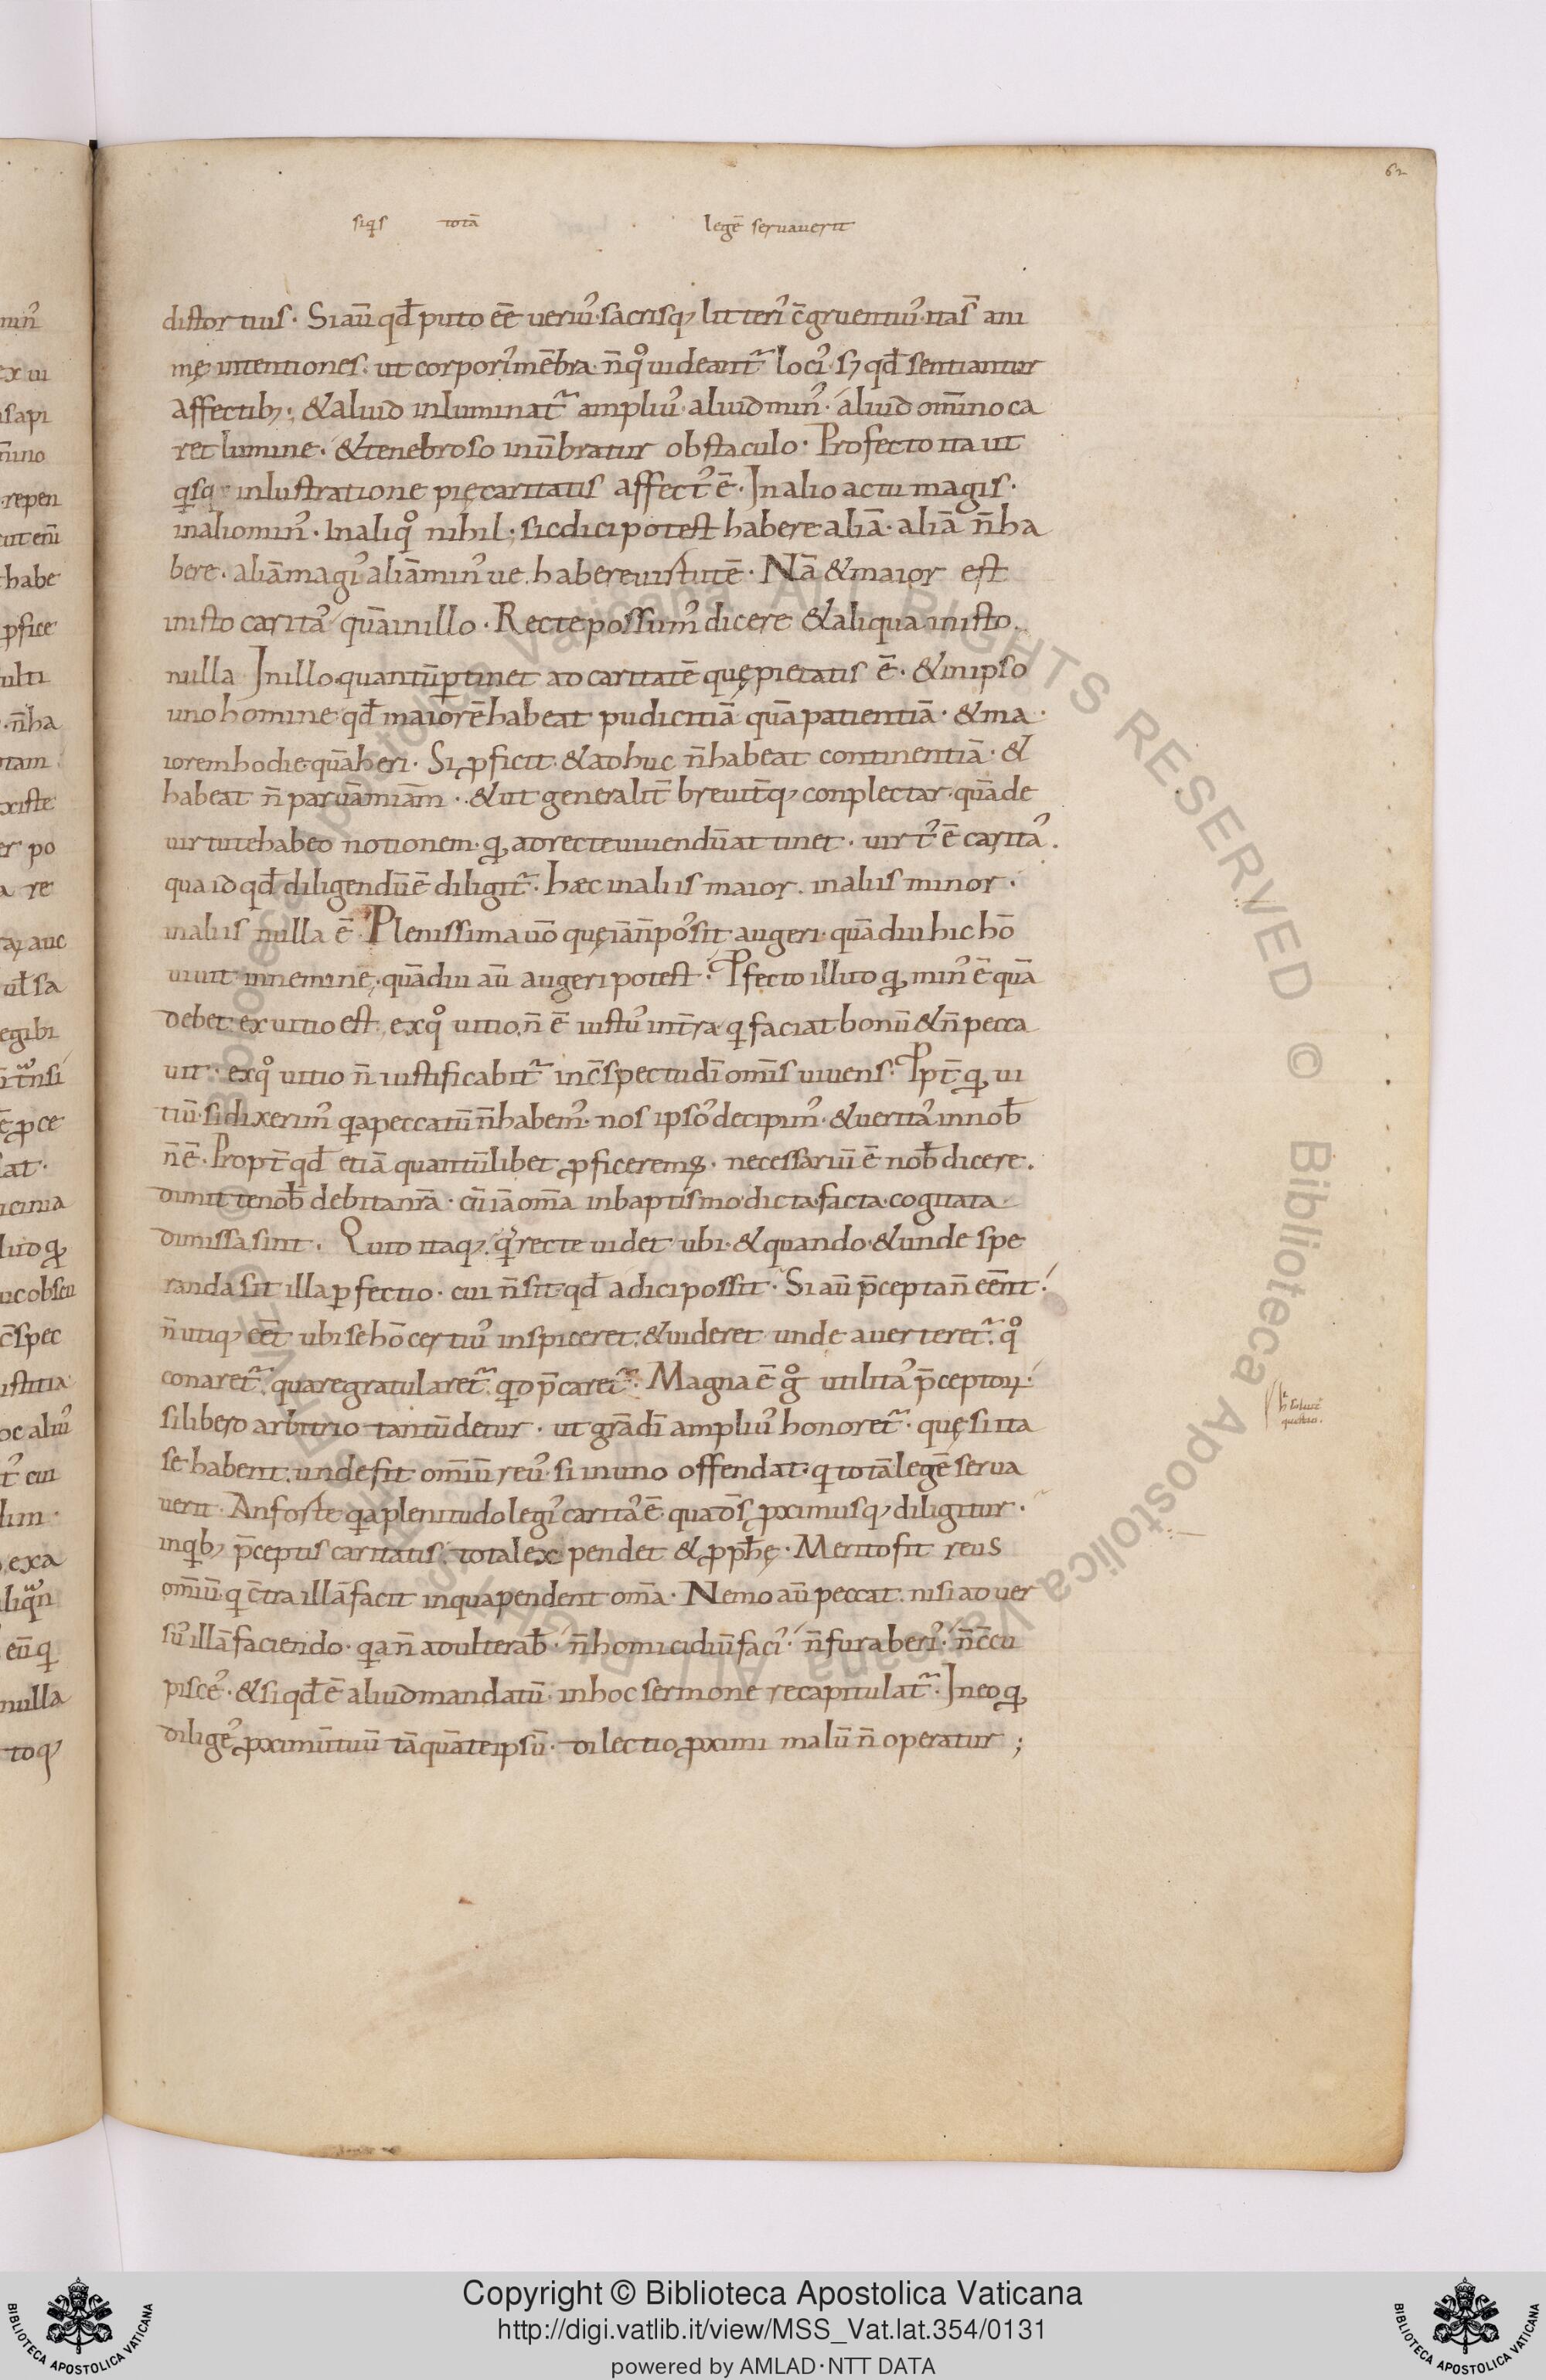 62
siqs totā legē seruauerit
distortius. Siaū qđ puto eē ueriu᾽ sacrisq; litteri᾽ c̄gruentiu᾽ itas̄ ani
mę intentiones. ut corpori᾽ mēbra. n̄ qͦ uideant᷑ loci᾽. sꝫ qđ sentiantur
affectib;. & aliud inluminat᷑ ampliu᾽ aliud min᾽. aliud om̄ino ca
ret lumine. & tenebroso inūbratur obstaculo. Profecto ita ut
qisq; inlustratione pię caritatis affect᾽ ē. In alio actu magis.
in alio min᾽. In aliqͦ nihil. sic dici potest habere aliā. aliā n̄ ha
bere. aliā magi᾽ aliā min᾽ue habere uirtutē. Nā & maior est
in isto carita᾽ quā in illo. Recte possum᾽ dicere & aliqua in isto
nulla In illo. quantū ꝑtinet ad caritatē quę pietatis ē. & in ipso
uno homine qđ maiorē habeat pudicitiā quā patientiā. & ma
iorem hodie quā heri. Si ꝓficit. & adhuc n̄ habeat continentiā. &
habeat n̄ paruā miām. & ut generalit̄ breuit̄q; conplectar quā de
uirtute habeo notionem. q; ad recte uiuendū attinet. uirt᾽ ē carita᾽.
qua id qđ diligendū ē diligit᷑. hæc in aliis maior. in aliis minor.
in aliis nulla ē. Plenissima uō quę iā n̄ po᾽sit augeri quādiu hic hō
uiuit in neminē. quādiu aū augeri potest. Ꝓfecto illud q; min᾽ ē quā
debet ex uitio est. ex qͦ uitio n̄ ē iustu᾽ in t̄ra qi faciat bonū & n̄ pecca
uit. ex qͦ uitio n̄ iustificabit᷑ in c̄spectu dī om̄is uiuens. Ꝓpt̄ q; ui
tiū si dixerim᾽ qia peccatū n̄ habem᾽. nos ipso᾽ decipim᾽. & uerita᾽ in nob̄
n̄ ē. Propt̄ qđ etiā quantūlibet ꝓficerem;. necessariū ē nob̄ dicere.
dimitte nob̄ debita nr̄a. cū iā om̄a in baptismo dicta facta cogitata
dimissa sint. Quid itaq; qi recte uidet ubi. & quando. & unde spe
randa sit illa ꝑfectio. cui n̄ sit qđ adici possit. Si aū p̄cepta n̄ eēnt.
n̄ utiq; eēt ubi se hō certiu᾽ inspiceret. & uideret unde auerteret᷑. qͦ
conaret᷑. quare gratularet᷑. qid p̄caret᷑. Magna ē gͦ utilita᾽ p̄ceptoꝝ.
si libero arbitrio tantū detur. ut gr̄a dī ampliu᾽ honoret᷑. quę si ita
se habent. unde fit om̄iū reu᾽ si in uno offendat. qi totā legē serua
uerit. An forte qia plenitudo legi᾽ carita᾽ ē. qua ds̄ ꝓximusq; diligitur.
in qib; p̄ceptis caritatis. tota lex pendet & ꝓpħę. Merito fit reus
om̄iū. qi c̄tra illā facit in qua pendent om̄a. Nemo aū peccat. nisi aduer
su᾽ illā faciendo. qia n̄ adulterab̄. n̄ homicidiū faci᾽. n̄ furaberi᾽. n̄ c̄cu
pisce᾽. & si qđ ē aliud mandatū. in hoc sermone recapitulat᷑. In eo q;
dilige᾽ ꝓximū tuū tā quā te ipsū. dilectio ꝓximi malū n̄ operatur;
Copyright © Biblioteca Apostolica Vaticana
http://digi.vatlib.it/view/MSS_Vat.lat.354/0131
powered by AMLAD·NTT DATA